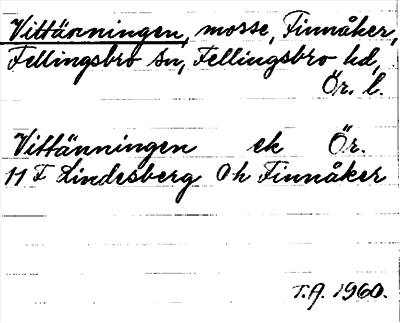 Vittänningen, mosse, Finnåker,
Fellingsbro sn, Fellingsbro hd,
Ör. l.
Vittänningen ek Ör.
11 F Lindesberg 0h Finnåker
T.A. 1960.